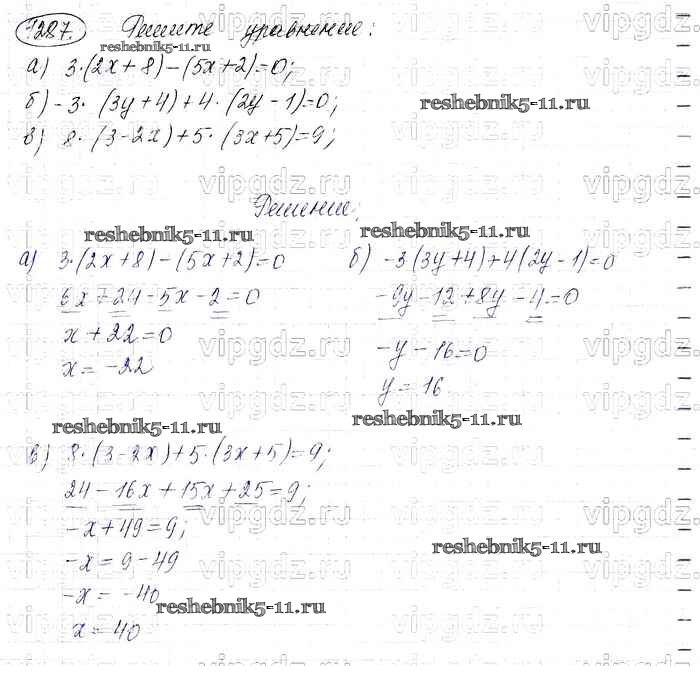 1287. Решите уравнение:
reshebnik5-11.ru
а) 3·(2x+8)-(5x+2)=0;
б) -3·(3y+4)+4·(2y-1)=0;
reshebnik5-11.ru
в) 8·(3-2x)+5·(3x+5)=9;
vipgdz.ru vipgdz.ru vipgdz.ru
Решение:
reshebnik5-11.ru reshebnik5-11.ru
а) 3·(2x+8)-(5x+2)=0
6x+24-5x-2=0
x+22=0
x=-22
б) -3(3y+4)+4(2y-1)=0
-9y-12+8y-4=0
-y-16=0
y=16
reshebnik5-11.ru reshebnik5-11.ru
в) 8·(3-2x)+5·(3x+5)=9;
24-16x+15x+25=9;
-x+49=9;
-x=9-49
reshebnik5-11.ru
-x=-40
reshebnik5-11.ru
x=40
vipgdz.ru vipgdz.ru